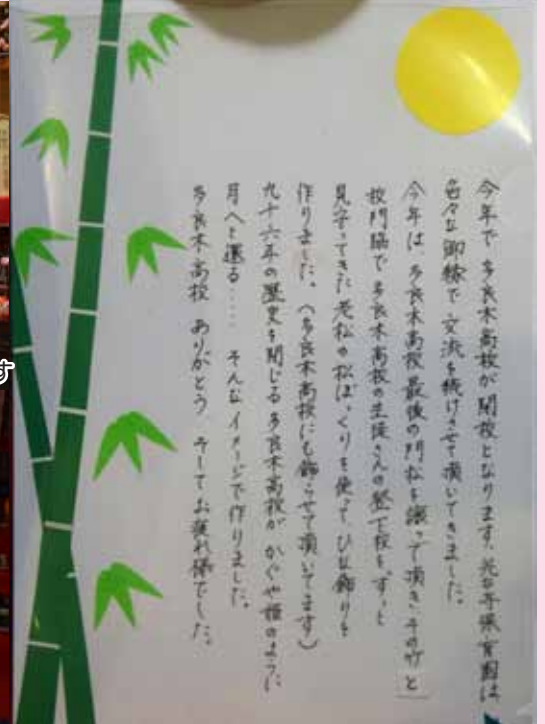 今年で多良木高校が閉校となります。光台寺保育園は
色々な御縁で交流を続けさせて頂いてきました。
今年は、多良木高校最後の門松を譲って頂き、その竹と
校門脇で多良木高校の生徒さんの登下校を、ずっと
見守ってきた老松の松ぼっくりを使って、ひな飾りを
作りました。（多良木高校にも飾らせて頂いてます）
九十六年の歴史を閉じる多良木高校が かぐや姫のように
月へと還る‥‥ そんなイメージで作りました。
多良木高校 ありがとう そしてお疲れ様でした。
す